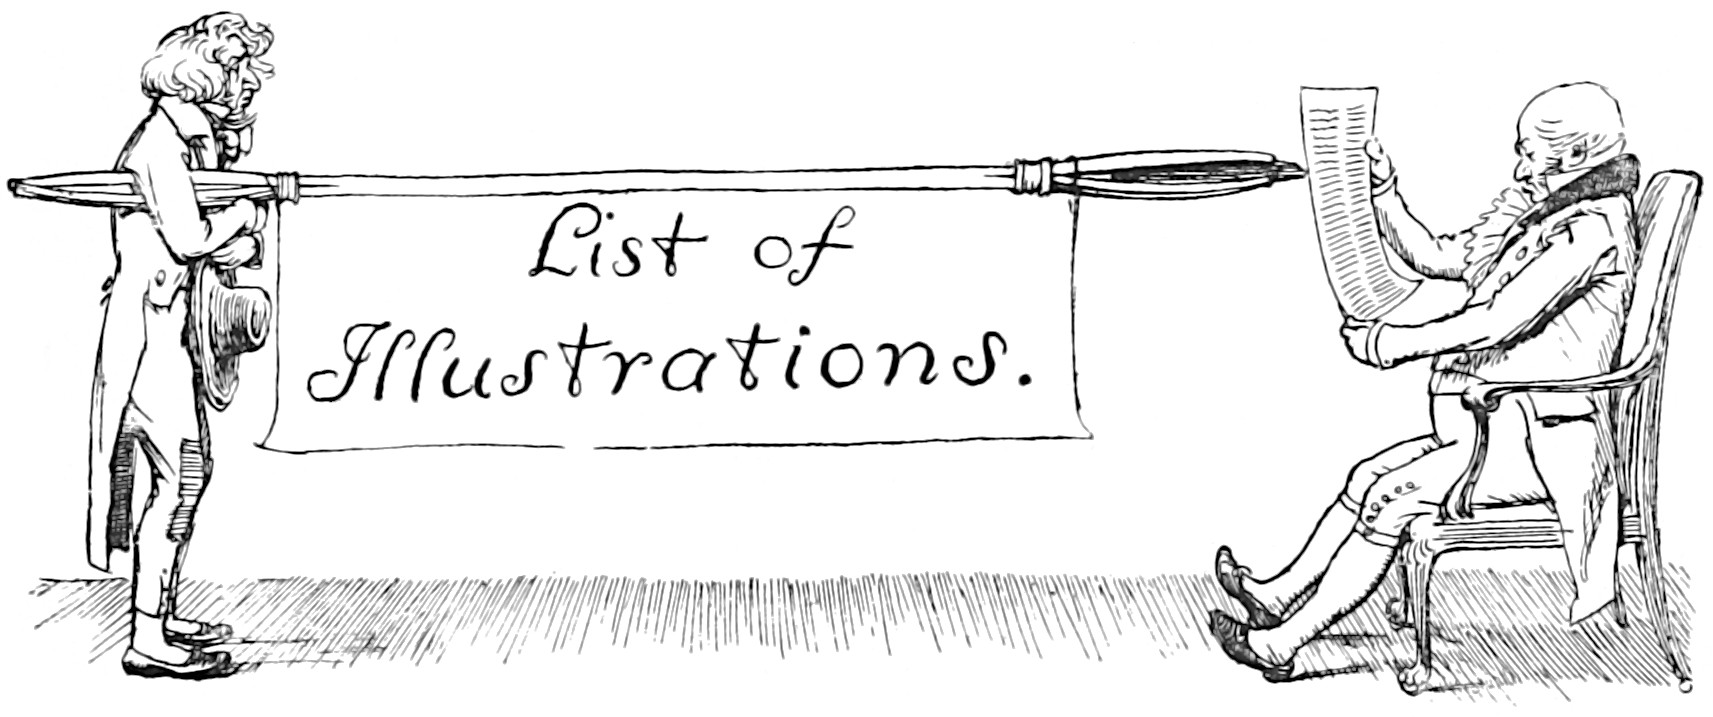 List of
Illustrations.